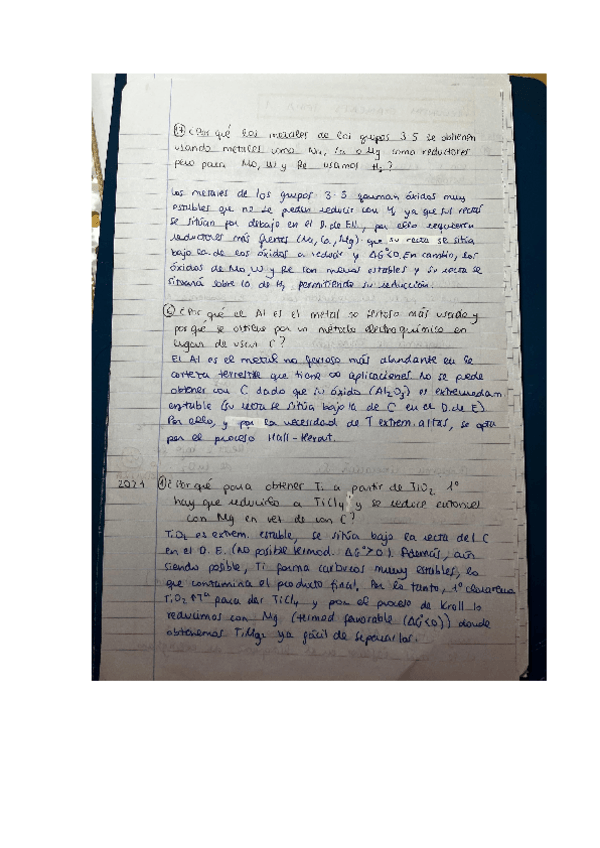 17 ¿Por qué los metales de los grupos 3-5 se obtienen
usando metales como Na, Ca o Mg como reductores
pero para Mo, W y Re usamos H2?
Los metales de los grupos 3-5 forman óxidos muy
estables que no se pueden reducir con H2 ya que sus rectas
se sitúan por debajo en el D. de Ell., por ello requieren
reductores más fuertes (Na, Ca, Mg) que su recta se sitúa
bajo la de los óxidos a reducir y ΔG°<0. En cambio, los
óxidos de Mo, W y Re son menos estables y su recta se
situará sobre la de H2 permitiendo su reducción.
¿Por qué el Al es el metal no férroso más usado y
por qué se obtiene por un método electroquímico en
lugar de usar C?
El Al es el metal no ferroso más abundante en la
corteza terrestre que tiene ∞ aplicaciones. No se puede
obtener con C dado que su óxido (Al2O3) es extremadam.
estable (su recta se sitúa bajo la de C en el D. de E).
Por ello, y por la necesidad de T extrem. altas, se opta
por el proceso Hall-Herout.
2021 1 ¿Por qué para obtener Ti a partir de TiO2 1º
hay que reducirlo a TiCl4 y se reduce entonces
con Mg en vez de con C?
TiO2 es extrem. estable, se sitúa bajo la recta del C
en el D. E. (No posible termod. ΔG°>0). Además, aún
siendo posible, Ti forma carburos muuy estables, lo
que contamina el producto final. Por lo tanto, 1º
TiO2 para dar TiCl4 y por el proceso de Kroll lo
reducimos con Mg (termod favorable (ΔG°<0)) donde
obtenemos ya fácil de separarlos.